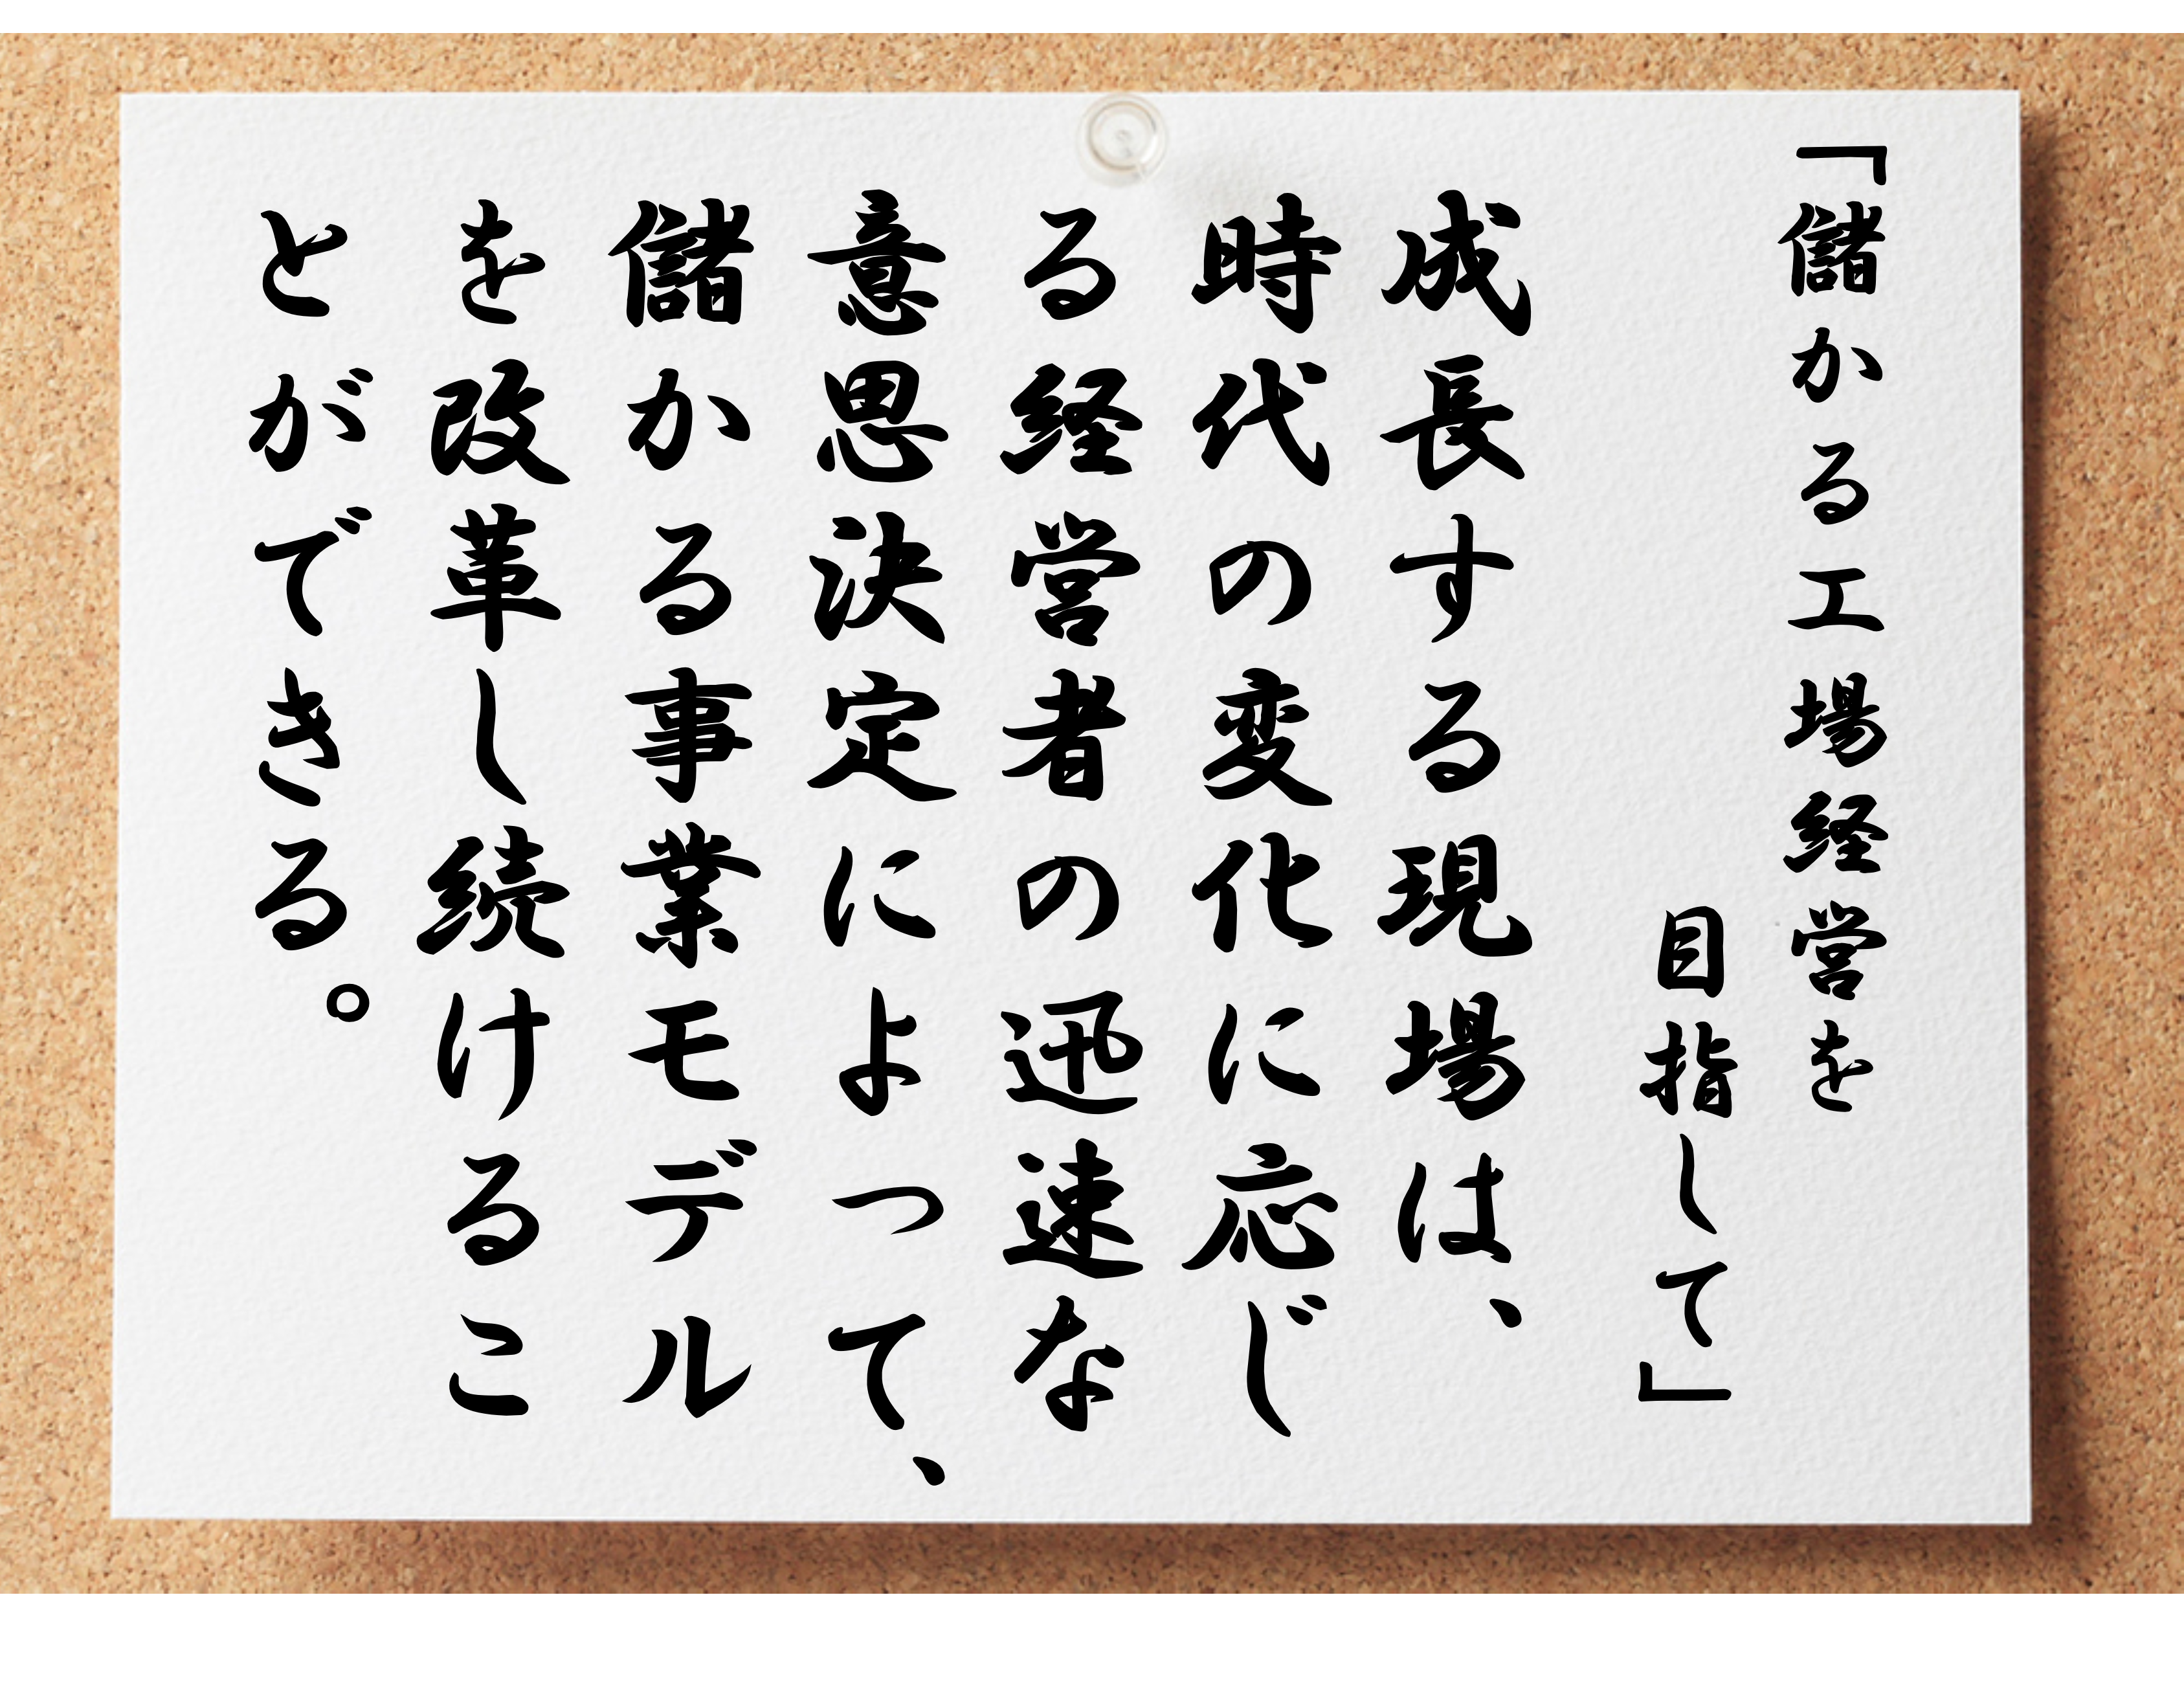 「儲かる工場経営を
目指して」
成長する現場は、
時代の変化に応じ
る経営者の迅速な
意思決定によって、
儲かる事業モデル
を改革し続けるこ
とができる。